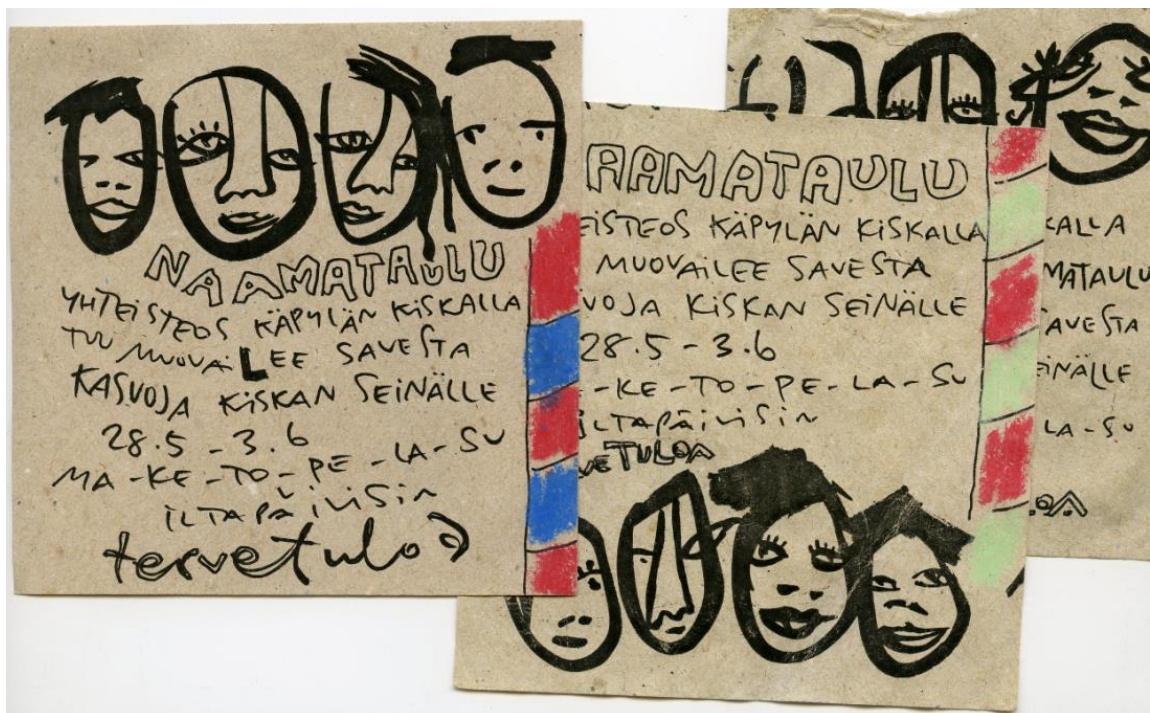 NAAMATAULU
YHTEISTEOS KÄPYLÄN KISKALLA
TUU MUOVAILEE SAVESTA
KASVOJA KISKAN SEINÄLLE
28.5 - 3.6
MA-KE-TO-PE-LA-SU
iLTAPÄIVISIN
tervetuloa
AAMATAULU
EISTEOS KÄPYLÄN KISKALLA
MUOVAILEE SAVESTA
VOJA KISKAN SEINÄLLE
28.5 - 3.6
-KE-TO-PE-LA-SU
iLTAPÄIVISIN
VETULOA
KALLA
MATAULU
AVESTA
EINÄLLE
LA-SU
OA